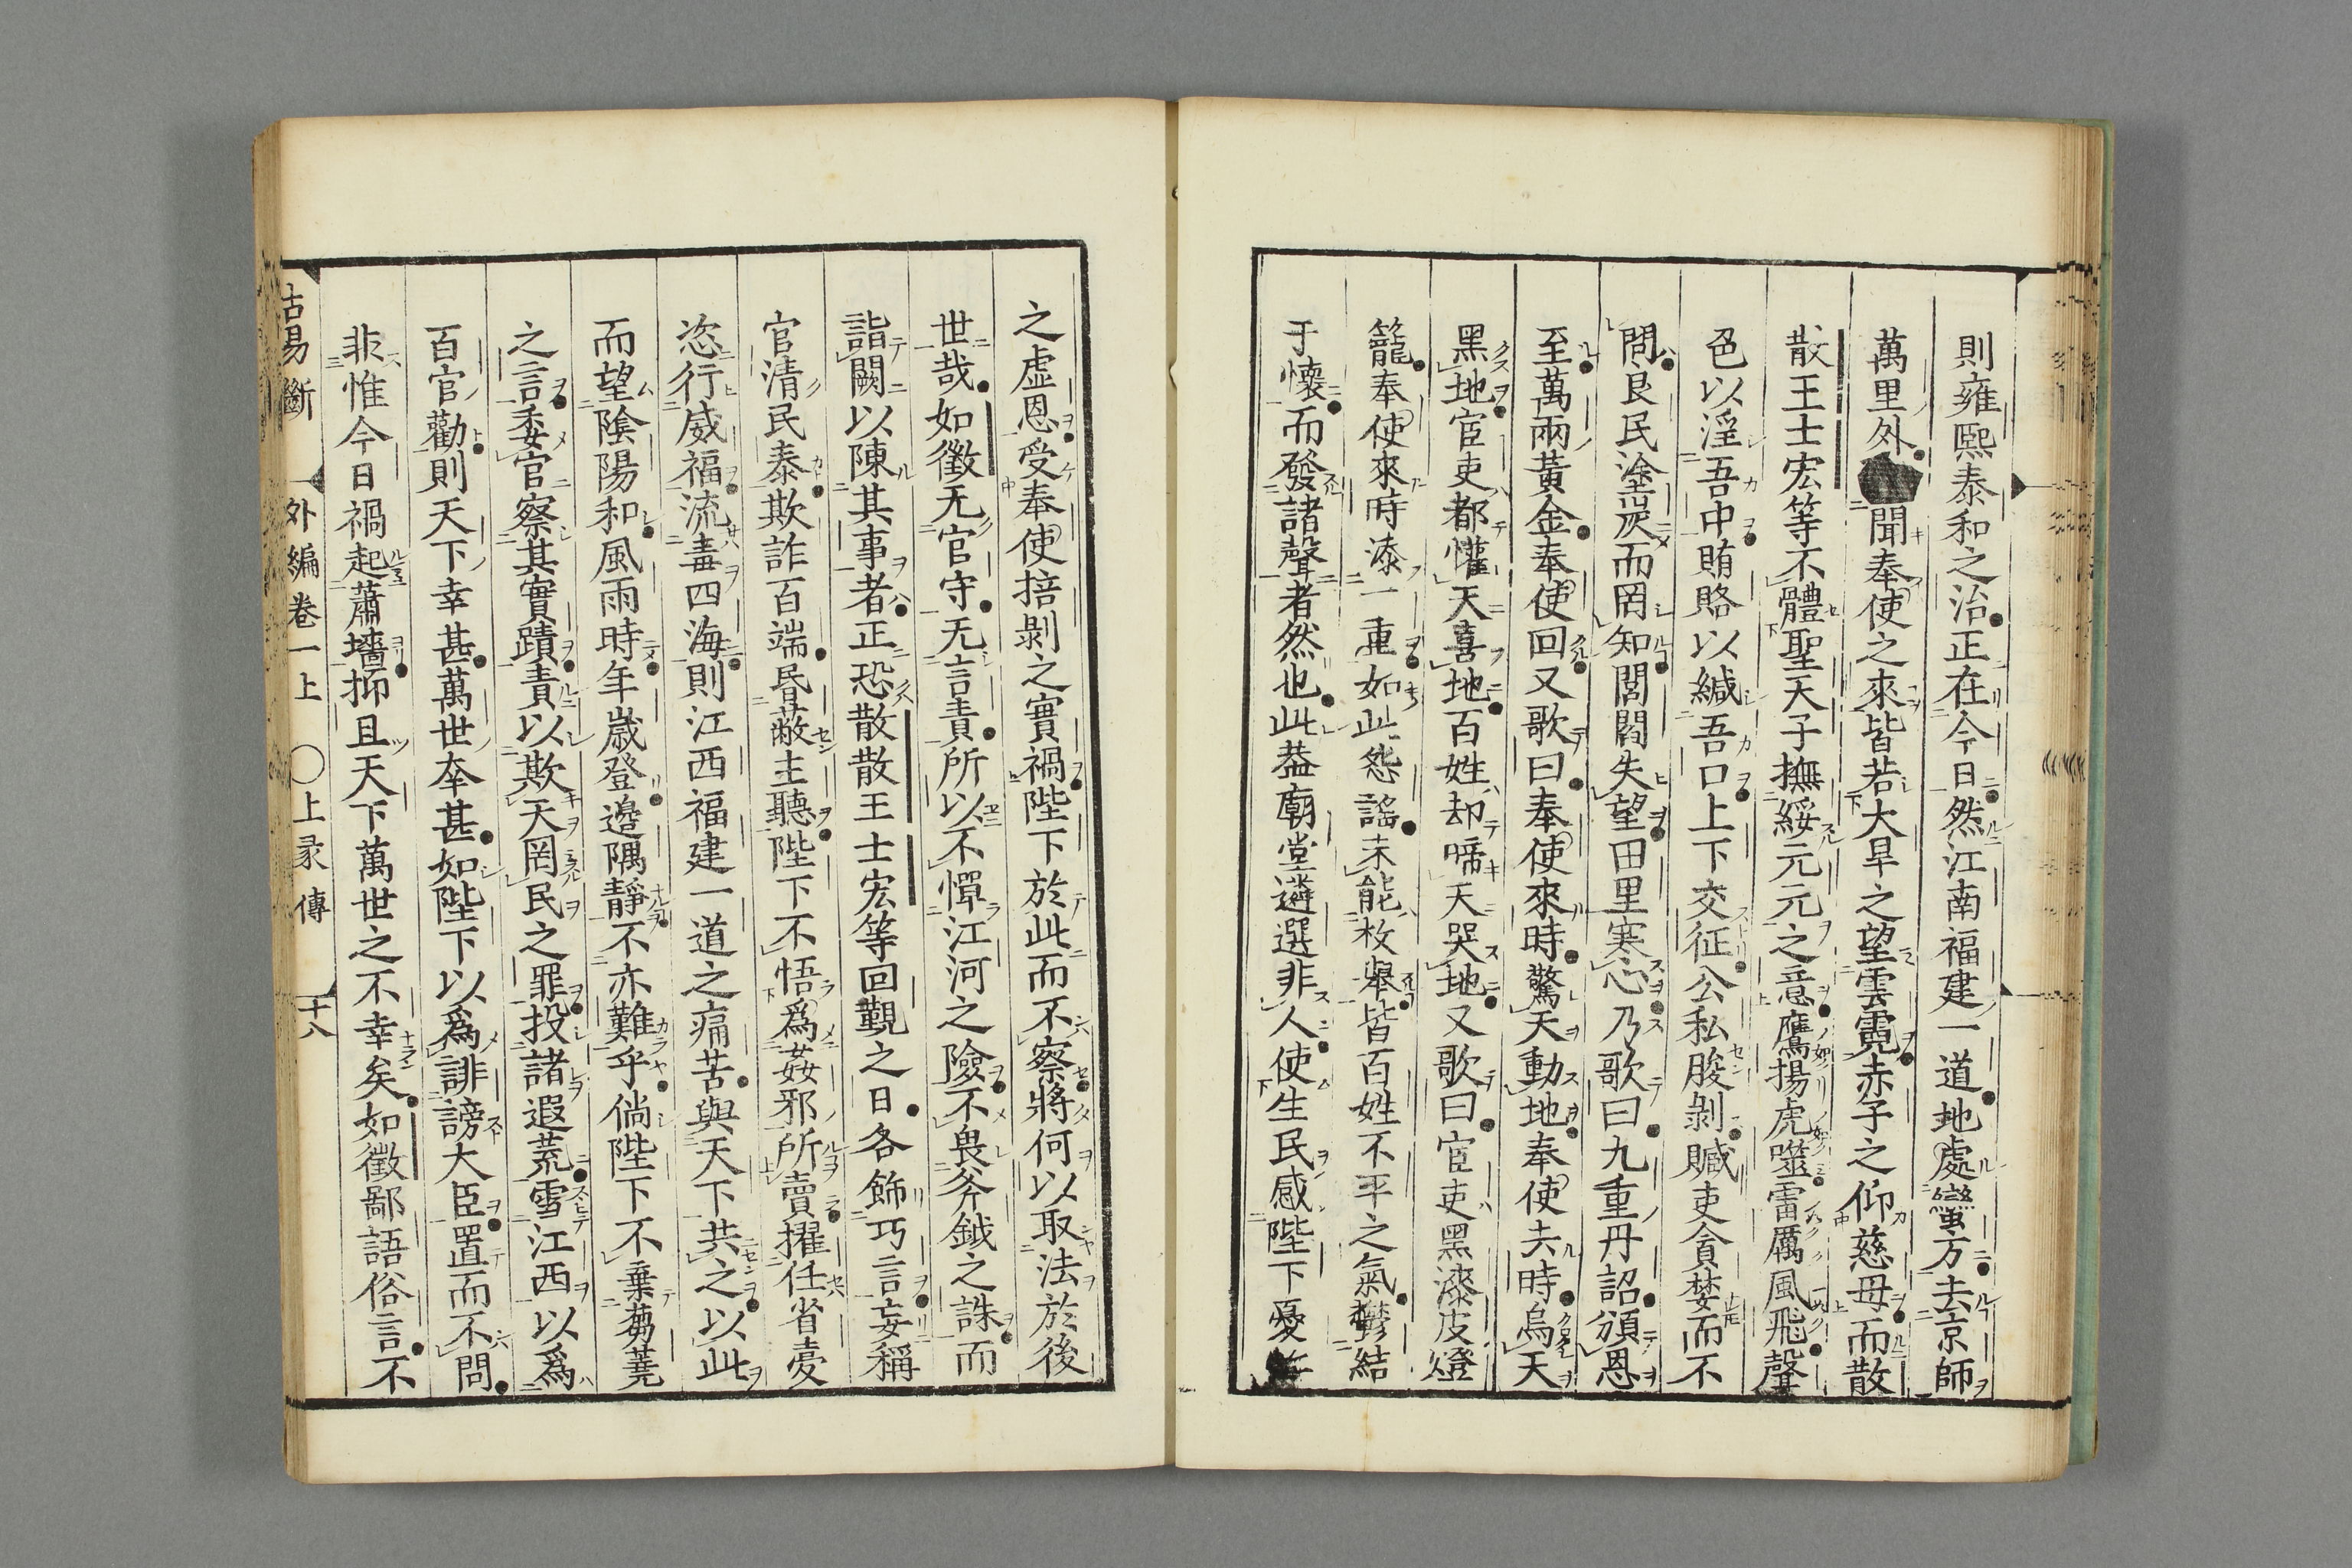 則雍熙泰和之治正在今日然江南福建一道地處蠻方去京師
萬里外聞奉使之來皆若大旱之望雲霓赤子之仰慈母而散
散王士宏等不體聖天子撫綏元元之意鷹揚虎噬雷厲風飛聲
色以淫吾中賄賂以緘吾口上下交征公私朘剝贓吏貪婪而不
問良民塗炭而罔知閭閻失望田里寒心乃歌曰九重丹詔頒恩
至萬兩黃金奉使回又歌曰奉使來時驚天動地奉使去時烏天
黑地官吏都懽天喜地百姓却啼天哭地又歌曰官吏黑漆皮燈
籠奉使來時添一重如此怨謠未能枚舉皆百姓不平之氣鬱結
于懷而發諸聲者然也此蓋廟堂遴選非人使生民感陛下憂
之虛恩受奉使掊剝之實禍陛下於此而不察將何以取法於後
世哉如徵无官守无言責所以不憚江河之險不畏斧鉞之誅而
詣闕以陳其事者正恐散散王士宏等回覲之日各飾巧言妄稱
官清民泰欺詐百端昬蔽主聽陛下不悟爲姦邪所賣擢任省臺
恣行威福流毒四海則江西福建一道之痛苦與天下共之以此
而望陰陽和風雨時年歲登邊隅靜不亦難乎倘陛下不棄蒭蕘
之言委官察其實蹟責以欺天罔民之罪投諸遐荒雪江西以爲
百官勸則天下幸甚萬世幸甚如陛下以爲誹謗大臣置而不問
非惟今日禍起蕭墻抑且天下萬世之不幸矣如徵鄙語俗言不
古易斷 外編卷一上 ○上彖傳 十八